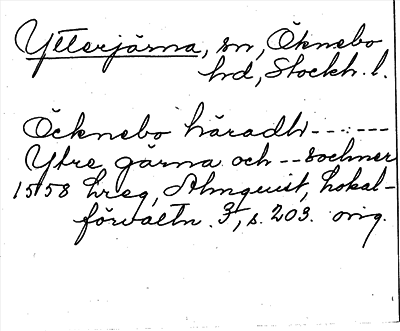 Ytterjärna, sn, Öknebo
hd, Stockh. l.
Öcknebo häradh------
Ytre gärna och -- sochner
1558 hreg, Almquist, Lokal-
förvaltn. 3, s. 203. orig.